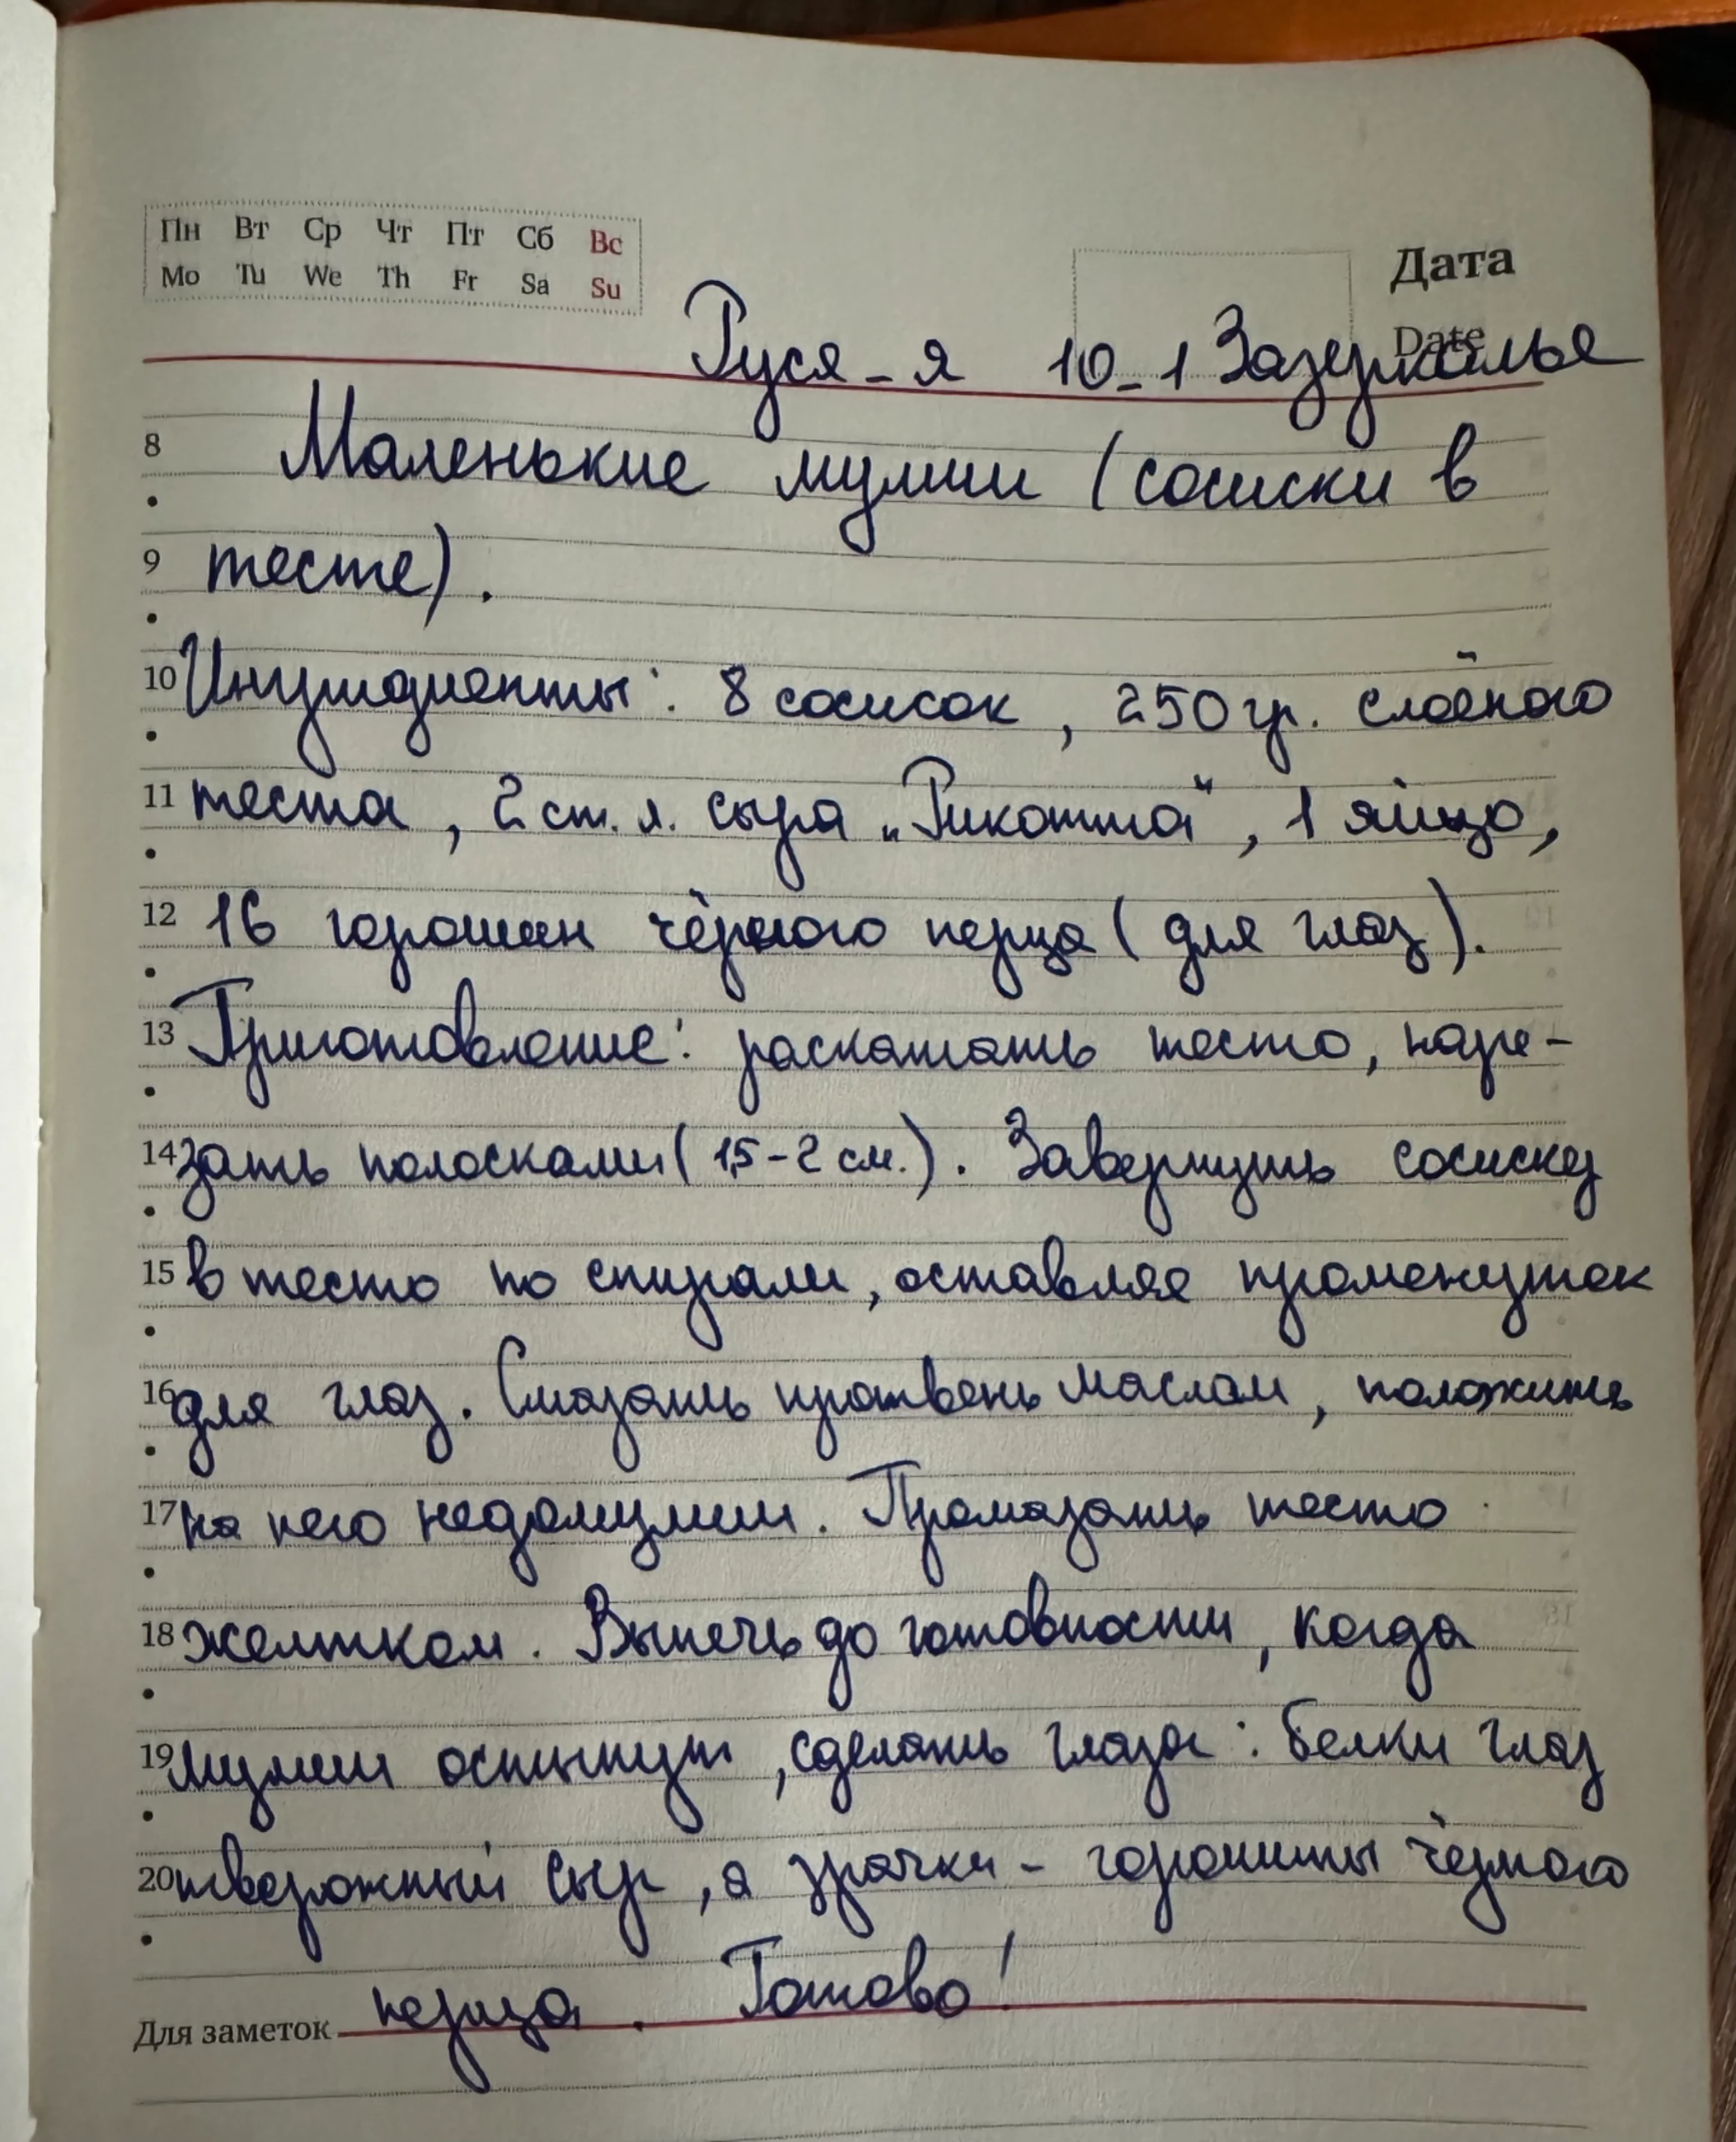 Пн Вт Ср Чт Пт Сб Вс
Mo Tu We Th Fr Sa Su
Дата
Date
Руся-я 10-1 Зазеркалье
8 Маленькие мумии (сосиски в
9 тесте).
10 Ингредиенты: 8 сосисок, 250 гр. слоёного
11 теста, 2 ст. л. сыра „Рикотта", 1 яйцо,
12 16 горошин чёрного перца (для глаз).
13 Приготовление: раскатать тесто, наре-
14 зать полосками (1,5-2 см.). Завернуть сосиску
15 в тесто по спирали, оставляя промежуток
16 для глаз. Смазать противень маслом, положить
17 на него недомумии. Промазать тесто
18 желтком. Выпечь до готовности, когда
19 мумии остынут, сделать глаза: белки глаз
20 творожный сыр, а зрачки - горошины чёрного
Для заметок перца. Готово!